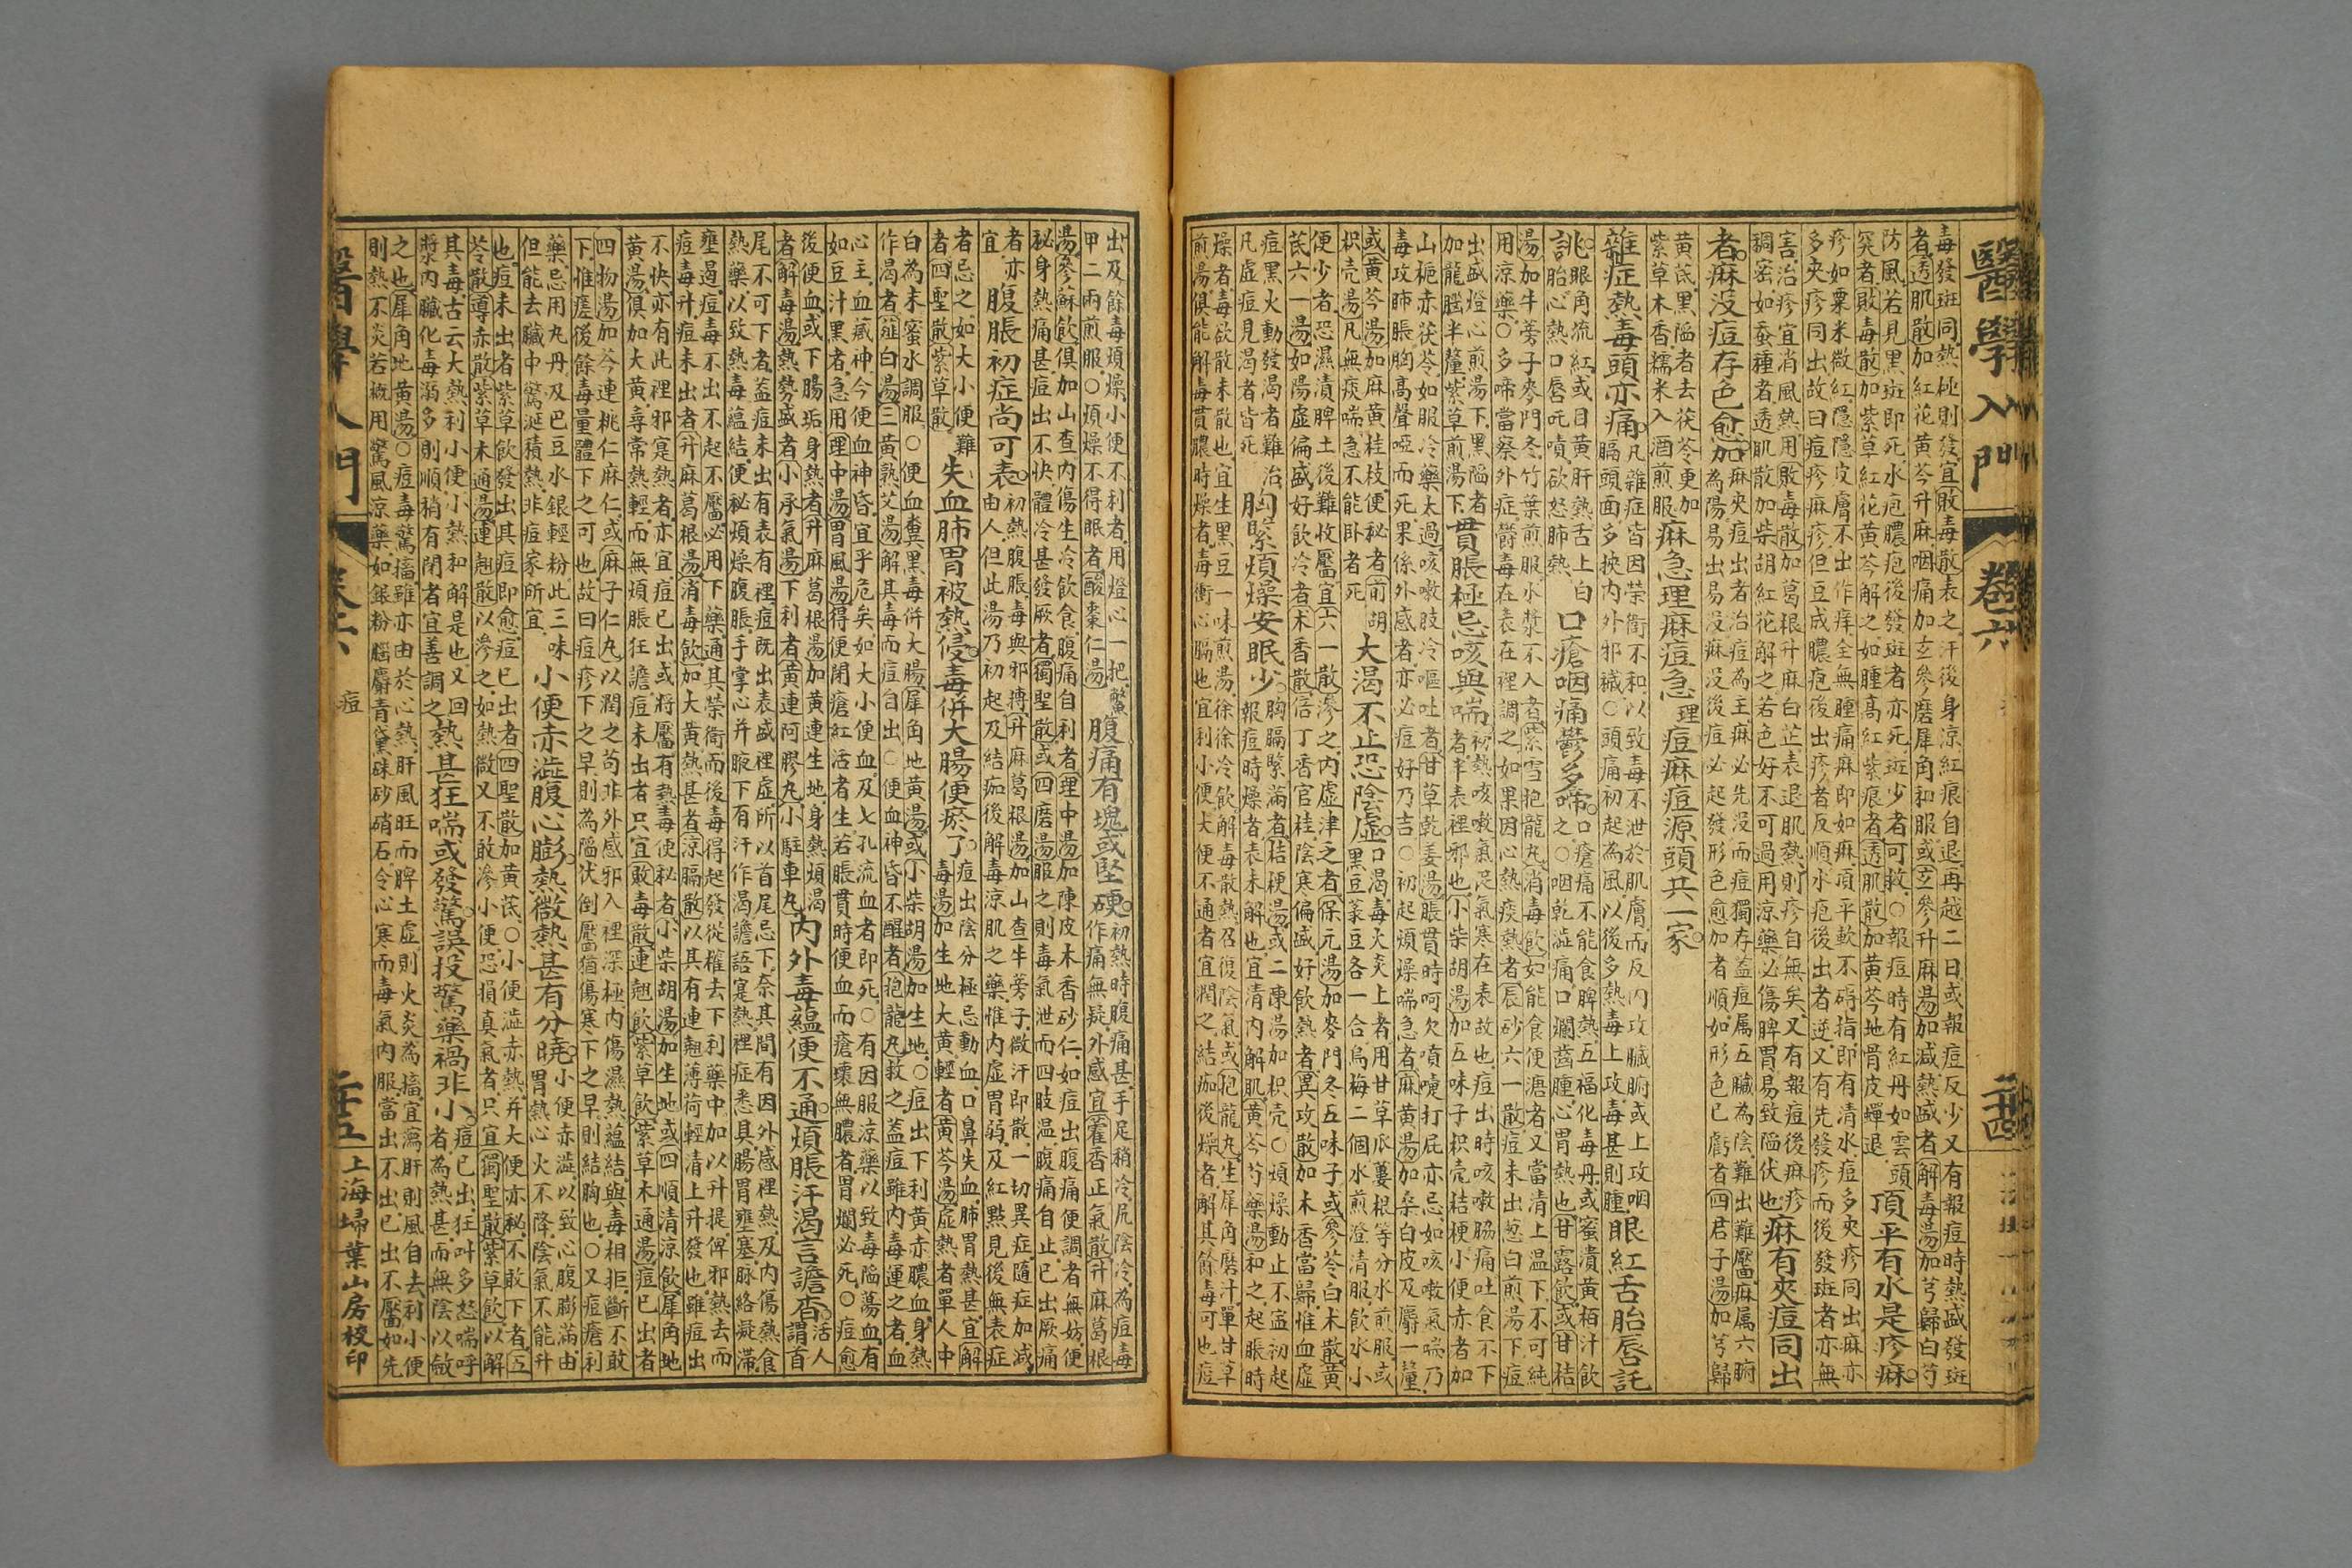 醫學入門 卷六 二十四
毒發斑同熱極則發宜敗毒散表之汗後身涼紅痕自退再越二日或報痘反少又有報痘時熱盛發斑
者透肌散加紅花黃芩升麻咽痛加玄參磨犀角和服或玄參升麻湯加減熱盛者解毒湯加芎歸白芍
防風若見黑斑即死水疱膿疱後發斑者亦死斑少者可救○報痘時有紅丹如雲頭
突者敗毒散加紫草紅花黃芩解之如腫高紅紫痕者透肌散加黃芩地骨皮蟬退
頂平有水是疹麻
疹如粟米微紅隱隱皮膚不出作痒全無腫痛麻即如麻頂平軟不碍指即有清水痘多夾疹同出麻亦
多夾疹同出故曰痘疹麻疹但豆成膿疱後出疹者反順水疱後出者逆又有先發疹而後發斑者亦無
害治疹宜消風熱用敗毒散加葛根升麻白芷表退肌熱則疹自無矣又有報痘後麻疹
稠密如蚕種者透肌散加柴胡紅花解之若色好不可過用涼藥必傷脾胃易致陷伏也
麻有夾痘同出
者麻沒痘存色愈加
麻夾痘出者治痘為主麻必先沒而痘獨存益痘属五臟為陰難出難靨麻属六腑
為陽易出易沒麻沒後痘必起發形色愈加者順如形色已虧者四君子湯加芎歸
黃芪黑陥者去茯苓更加
紫草木香糯米入酒煎服
麻急理麻痘急理痘麻痘源頭共一家
雜症熱毒頭亦痛
凡雜症皆因荣衛不和以致毒不泄於肌膚而反內攻臟腑或上攻咽
膈頭面多挾內外邪穢○頭痛初起為風以後多熱毒上攻毒甚則腫
眼紅舌胎唇託
誂
眼角流紅或目黃肝熱舌上白
胎心熱口唇吒嘖欲怒肺熱
口瘡咽痛鬱多啼
口瘡痛不能食脾熱五福化毒丹或蜜漬黃栢汁飲
之○咽乾澁痛口爛齒腫心胃熱也甘露飲或甘桔
湯加牛蒡子麥門冬竹葉煎服水漿不入者紫雪抱龍丸消毒飲如能食便溏者又當清上温下不可純
用涼藥○多啼當察外症欝毒在表在裡調之如果因心熱痰熱者辰砂六一散痘未出葱白煎湯下痘
出盛燈心煎湯下黑陥者
加龍腦半釐紫草煎湯下
貫脹極忌咳與喘
初熱咳嗽氣促氣寒在表故也痘出時咳嗽胁痛吐食不下
者半表裡邪也小柴胡湯加五味子枳壳桔梗小便赤者加
山梔赤茯苓如服冷藥太過咳嗽肢冷嘔吐者甘草乾姜湯脹貫時呵欠噴嚏打屁亦忌如咳嗽氣喘乃
毒攻肺脹胸高聲啞而死果係外感者亦必痘好乃吉○初起煩燥喘急者麻黃湯加桑白皮及麝一釐
或黃芩湯加麻黃桂枝便秘者前胡
枳壳湯凡無痰喘急不能卧者死
大渴不止恐陰虛
口渴毒火炎上者用甘草瓜蔞根等分水煎服或
黑豆菉豆各一合烏梅二個水煎澄清服飲水小
便少者恐濕漬脾土後難收靨宜六一散滲之內虛津之者保元湯加麥門冬五味子或參苓白朮散黃
芪六一湯如陽虛偏盛好飲冷者木香散倍丁香官桂陰寒偏盛好飲熱者異攻散加木香當歸惟血虛
痘黑火動發渴者難治
凡虛痘見渴者皆死
胸緊煩燥安眠少
胸膈緊滿者桔梗湯或二陳湯加枳壳○煩燥動止不寍初起
報痘時燥者表未解也宜清內解肌黃芩芍藥湯和之起脹時
燥者毒欲散未散也宜生黑豆一味煎湯徐徐冷飲解毒散熱召復陰氣或抱龍丸生犀角磨汁單甘草
煎湯俱能解毒貫膿時燥者毒衝心膈也宜利小便大便不通者宜潤之結痂後燥者解其餘毒可也痘
出及餘毒煩燥小便不利者用燈心一把鱉
甲二兩煎服○煩燥不得眠者酸棗仁湯
腹痛有塊或堅硬
初熱時腹痛甚手足稍冷尻陰冷為痘毒
作痛無疑外感宜藿香正氣散升麻葛根
湯參蘇飲俱加山查內傷生冷飲食腹痛自利者理中湯加陳皮木香砂仁如痘出腹痛便調者無妨便
秘身熱痛甚痘出不快體冷甚發厥者獨聖散或四磨湯服之則毒氣泄而四肢温腹痛自止已出厥痛
者亦
宜
腹脹初症尚可表
初熱腹脹毒與邪搏升麻葛根湯加山查牛蒡子微汗即散一切異症隨症加減
由人但此湯乃初起及結痂後解毒涼肌之藥惟內虛胃弱及紅點見後無表症
者忌之如大小便難
者四聖散紫草散
失血肺胃被熱侵毒併大腸便瘀了
痘出陰分極忌動血口鼻失血肺胃熱甚宜解
毒湯加生地大黃輕者黃芩湯虛熱者單人中
白為末蜜水調服○便血糞黑毒併大腸犀角地黃湯或小柴胡湯加生地○痘出下利黃赤膿血身熱
作渴者薤白湯三黃熟艾湯解其毒而痘自出○便血神昏不醒者抱龍丸救之益痘雖內毒運之者血
心主血氣神今便血神昏宜乎危矣如大小便血及七孔流血者即死○有因服涼藥以致毒陥蕩血有
如豆汁黑者急用理中湯胃風湯得便閉瘡紅活者生若脹貫時便血而瘡壞無膿者胃爛必死○痘愈
後便血或下腸垢身熱者升麻葛根湯加黃連生地身熱煩渴
者解毒湯熱勢盛者小承氣湯下利者黃連阿膠丸小駐車丸
內外毒蘊便不通煩脹汗渴言譫杳
活人
謂首
尾不可下者益痘未出有表有裡痘既出表盛裡虛所以首尾忌下奈其間有因外感裡熱及內傷熱食
熱藥以致熱毒蘊結便秘煩燥腹脹手掌心并腋下有汗作渴譫語寔熱裡症悉具腸胃壅塞脉絡凝滞
壅遏痘毒不出不起不靨必用下藥通其荣衛而後毒得起發從權去下利藥中加以升提俾邪熱去而
痘毒升痘未出者升麻葛根湯消毒飲加大黃熱甚者涼膈散以其有連翹薄荷輕清上升發也雖痘出
不快亦有此裡邪寔熱者亦宜痘已出或將靨有熱毒便秘者小柴胡湯加生地或四順清涼飲犀角地
黃湯俱加大黃尋常熱輕而無煩脹狂譫痘未出者只宜敗毒散連翹飲紫草飲紫草木通湯痘已出者
四物湯加芩連桃仁麻仁或麻子仁丸以潤之苟非外感邪入裡深極內傷濕熱蘊結與毒相拒斷不敢
下惟瘥後餘毒量體下之可也故曰痘疹下之早則為陥伏倒靨猶傷寒下之早則結胸也○又痘瘡利
藥忌用丸丹及巴豆水銀輕粉此三味
但能去臟中驚涎積熱非痘家所宜
小便赤澁腹心膨熱微熱甚有分曉
小便赤澁以致心腹膨滿由
胃熱心火不降陰氣不能升
也痘未出者紫草飲發出其痘即愈痘已出者四聖散加黃芪○小便澁赤熱并大便亦秘不敢下者五
苓散導赤散紫草木通湯連翹散以滲之如熱微又不敢滲小便恐損真氣者只宜獨聖散紫草飲以解
其毒古云大熱利小便小熱和解是也又回
漿內臟化毒溺多則順稍有閉者宜善調之
熱甚狂喘或發驚誤投驚藥禍非小
痘已出狂叫多怒喘呼
者為熱甚而無陰以斂
之也犀角地黃湯○痘毒驚搐雖亦由於心熱肝風旺而脾土虛則火炎為搐宜瀉肝則風自去利小便
則熱不炎若槪用驚風涼藥如銀粉腦麝青黛硃砂硝石令心寒而毒氣內服當出不出已出不靨如先
醫學入門 卷六 痘 二十五 上海埽葉山房校印